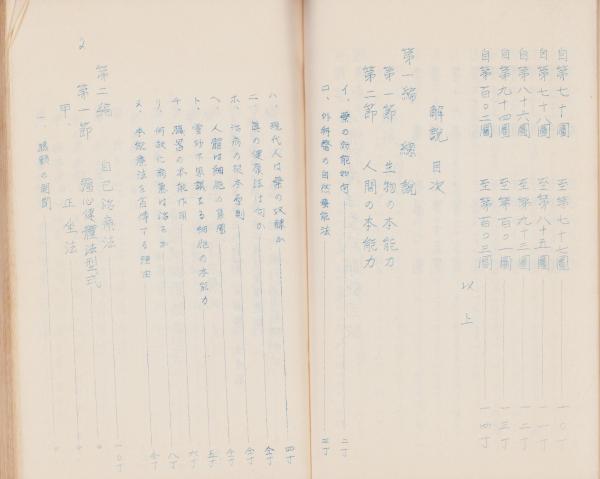 自第七十圖 至第七十七圖 一〇丁
自第七十八圖 至第八十五圖 一一丁
自第八十六圖 至第九十三圖 一二丁
自第九十四圖 至第百〇一圖 一三丁
自第百〇二圖 至第百〇三圖 一四丁
以上
解説目次
第一編 總説
第一節 生物の本能力
第二節 人間の本能力
イ、藥の効能如何 二丁
ロ、外科醫の自然療能法 三丁
ハ、現代人は藥の奴隷か 四丁
ニ、眞の健康法は何か 仝丁
ホ、治病の根本原則 仝丁
ヘ、人體は細胞の集團 五丁
ト、靈妙不思議なる細胞の本能力 六丁
チ、本能作用 八丁
リ、何故に病氣は治るか 仝丁
ヌ、本能療法を宣傳する理由 一〇丁
2
第二編 自己治療法
第一節 健體法型式
甲、正坐法
一、